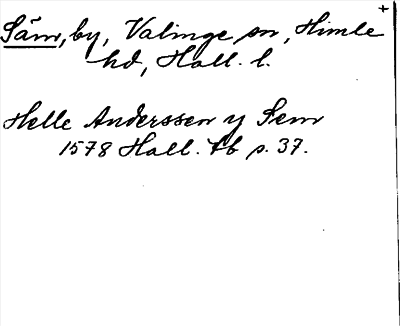 Säm, by, Valinge sn, Himle +
hd, Hall. l.
Helle Anderssen y Sem
1578 Hall. tb s. 37.